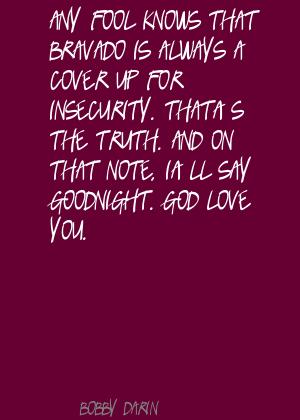 ANY FOOL KNOWS THAT
BRAVADO IS ALWAYS A
COVER UP FOR
INSECURITY. THATA S
THE TRUTH. AND ON
THAT NOTE, IA LL SAY
GOODNIGHT. GOD LOVE
YOU.
BOBBY DARIN